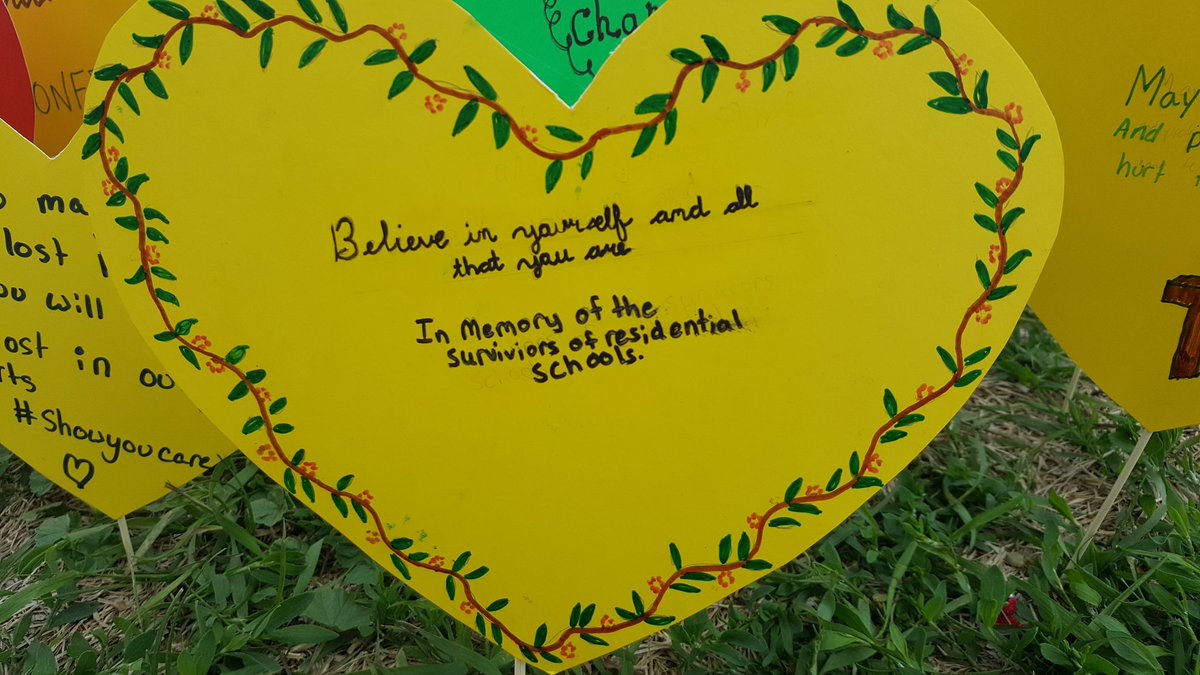 Believe in yourself and all
that you are
In Memory of the
surviviors of residential
schools.
ma
lost
will
ost in ou
#Showyoucare
Cha
ONE
May
And
hurt